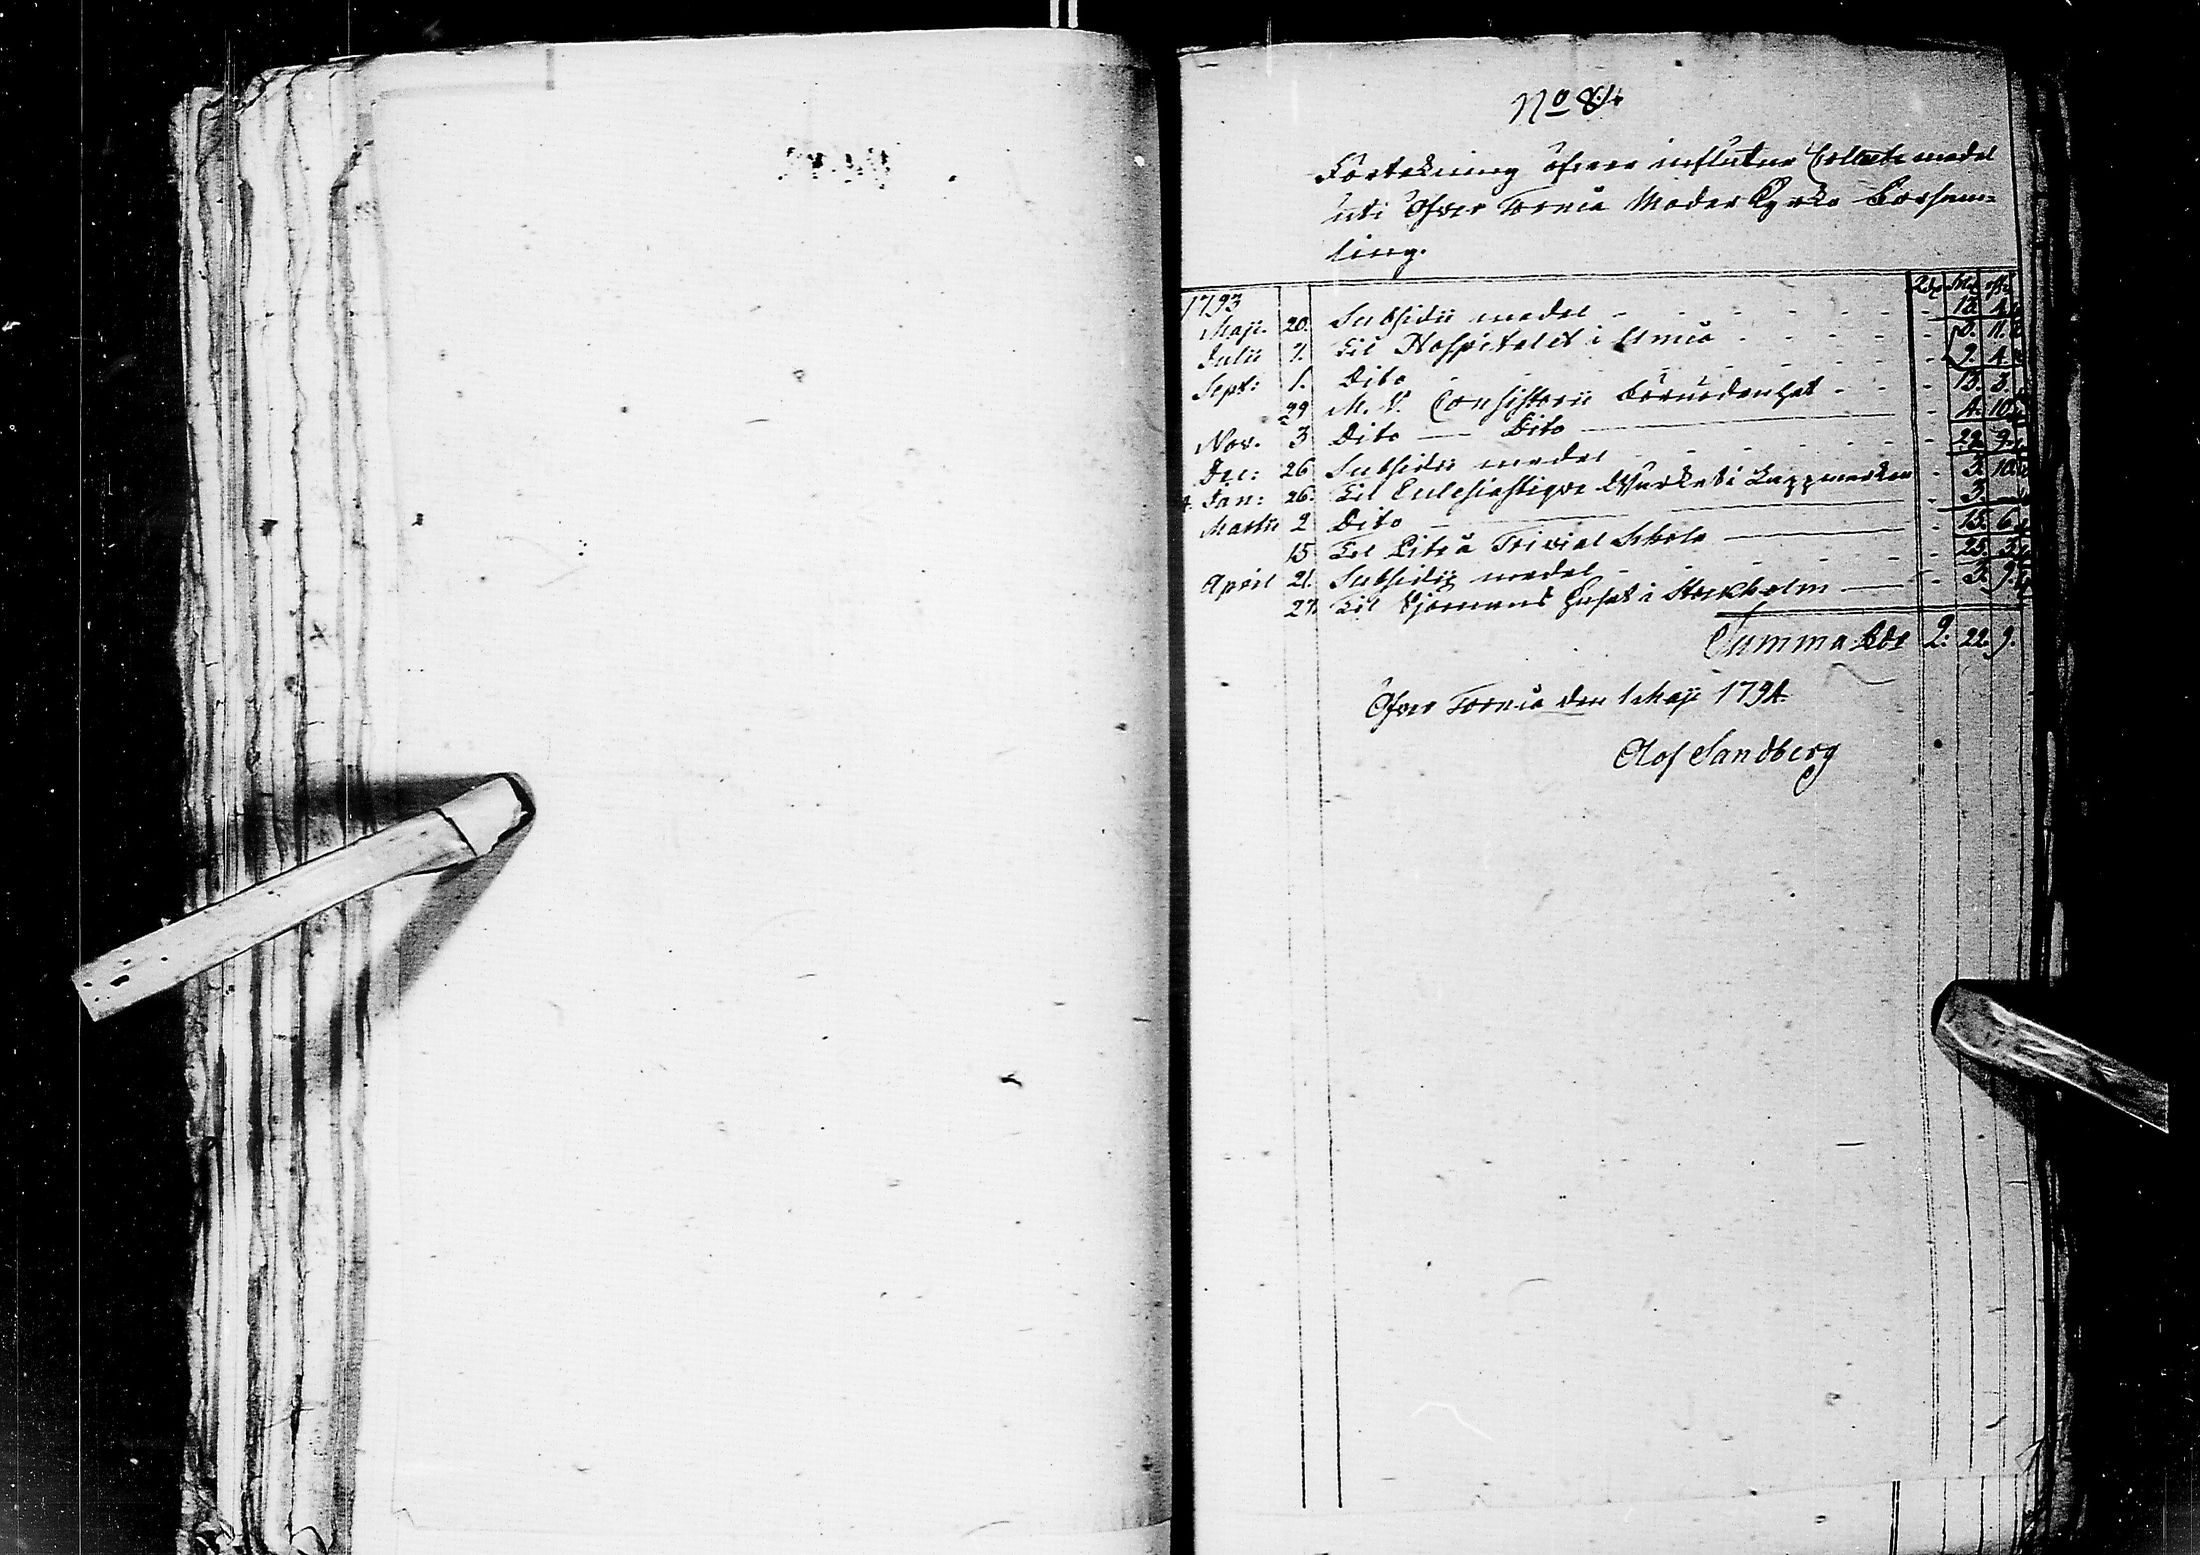 No 84
Förtekning öfver influtne Collecte medel
uti Öfver Torneå Moder Kyrko Försam=
ling.
1793 Rdr
Maji. 20. Subsidii medel - - - - - 4.
Julii 7. Til Hospitalet i Umeå - - - - 11.
Sept: 1. Dito - - - - - 4.
29 M. V. Consistorii - - - 13. 3.
Nov. 3 Dito — Dito — 4. 10.
Dec: 26 Subsidii medel - - - - - 22. 9.
4. Jan: 26. Til Ecclesiastique Wärket i Lappmarken - 3. 10.
Martii 2 Dito — 3. —
15 Til Piteå Trivial Schola — 15. 6.
April 21. Subsidii medel - - - - - 25. 3.
27. Til Sjömans huset i Stockholm — 3. 9.
Summa Rdr 2: 22. 9.
Öfver Torneå den 1 Maji 1794.
Olof Sandberg